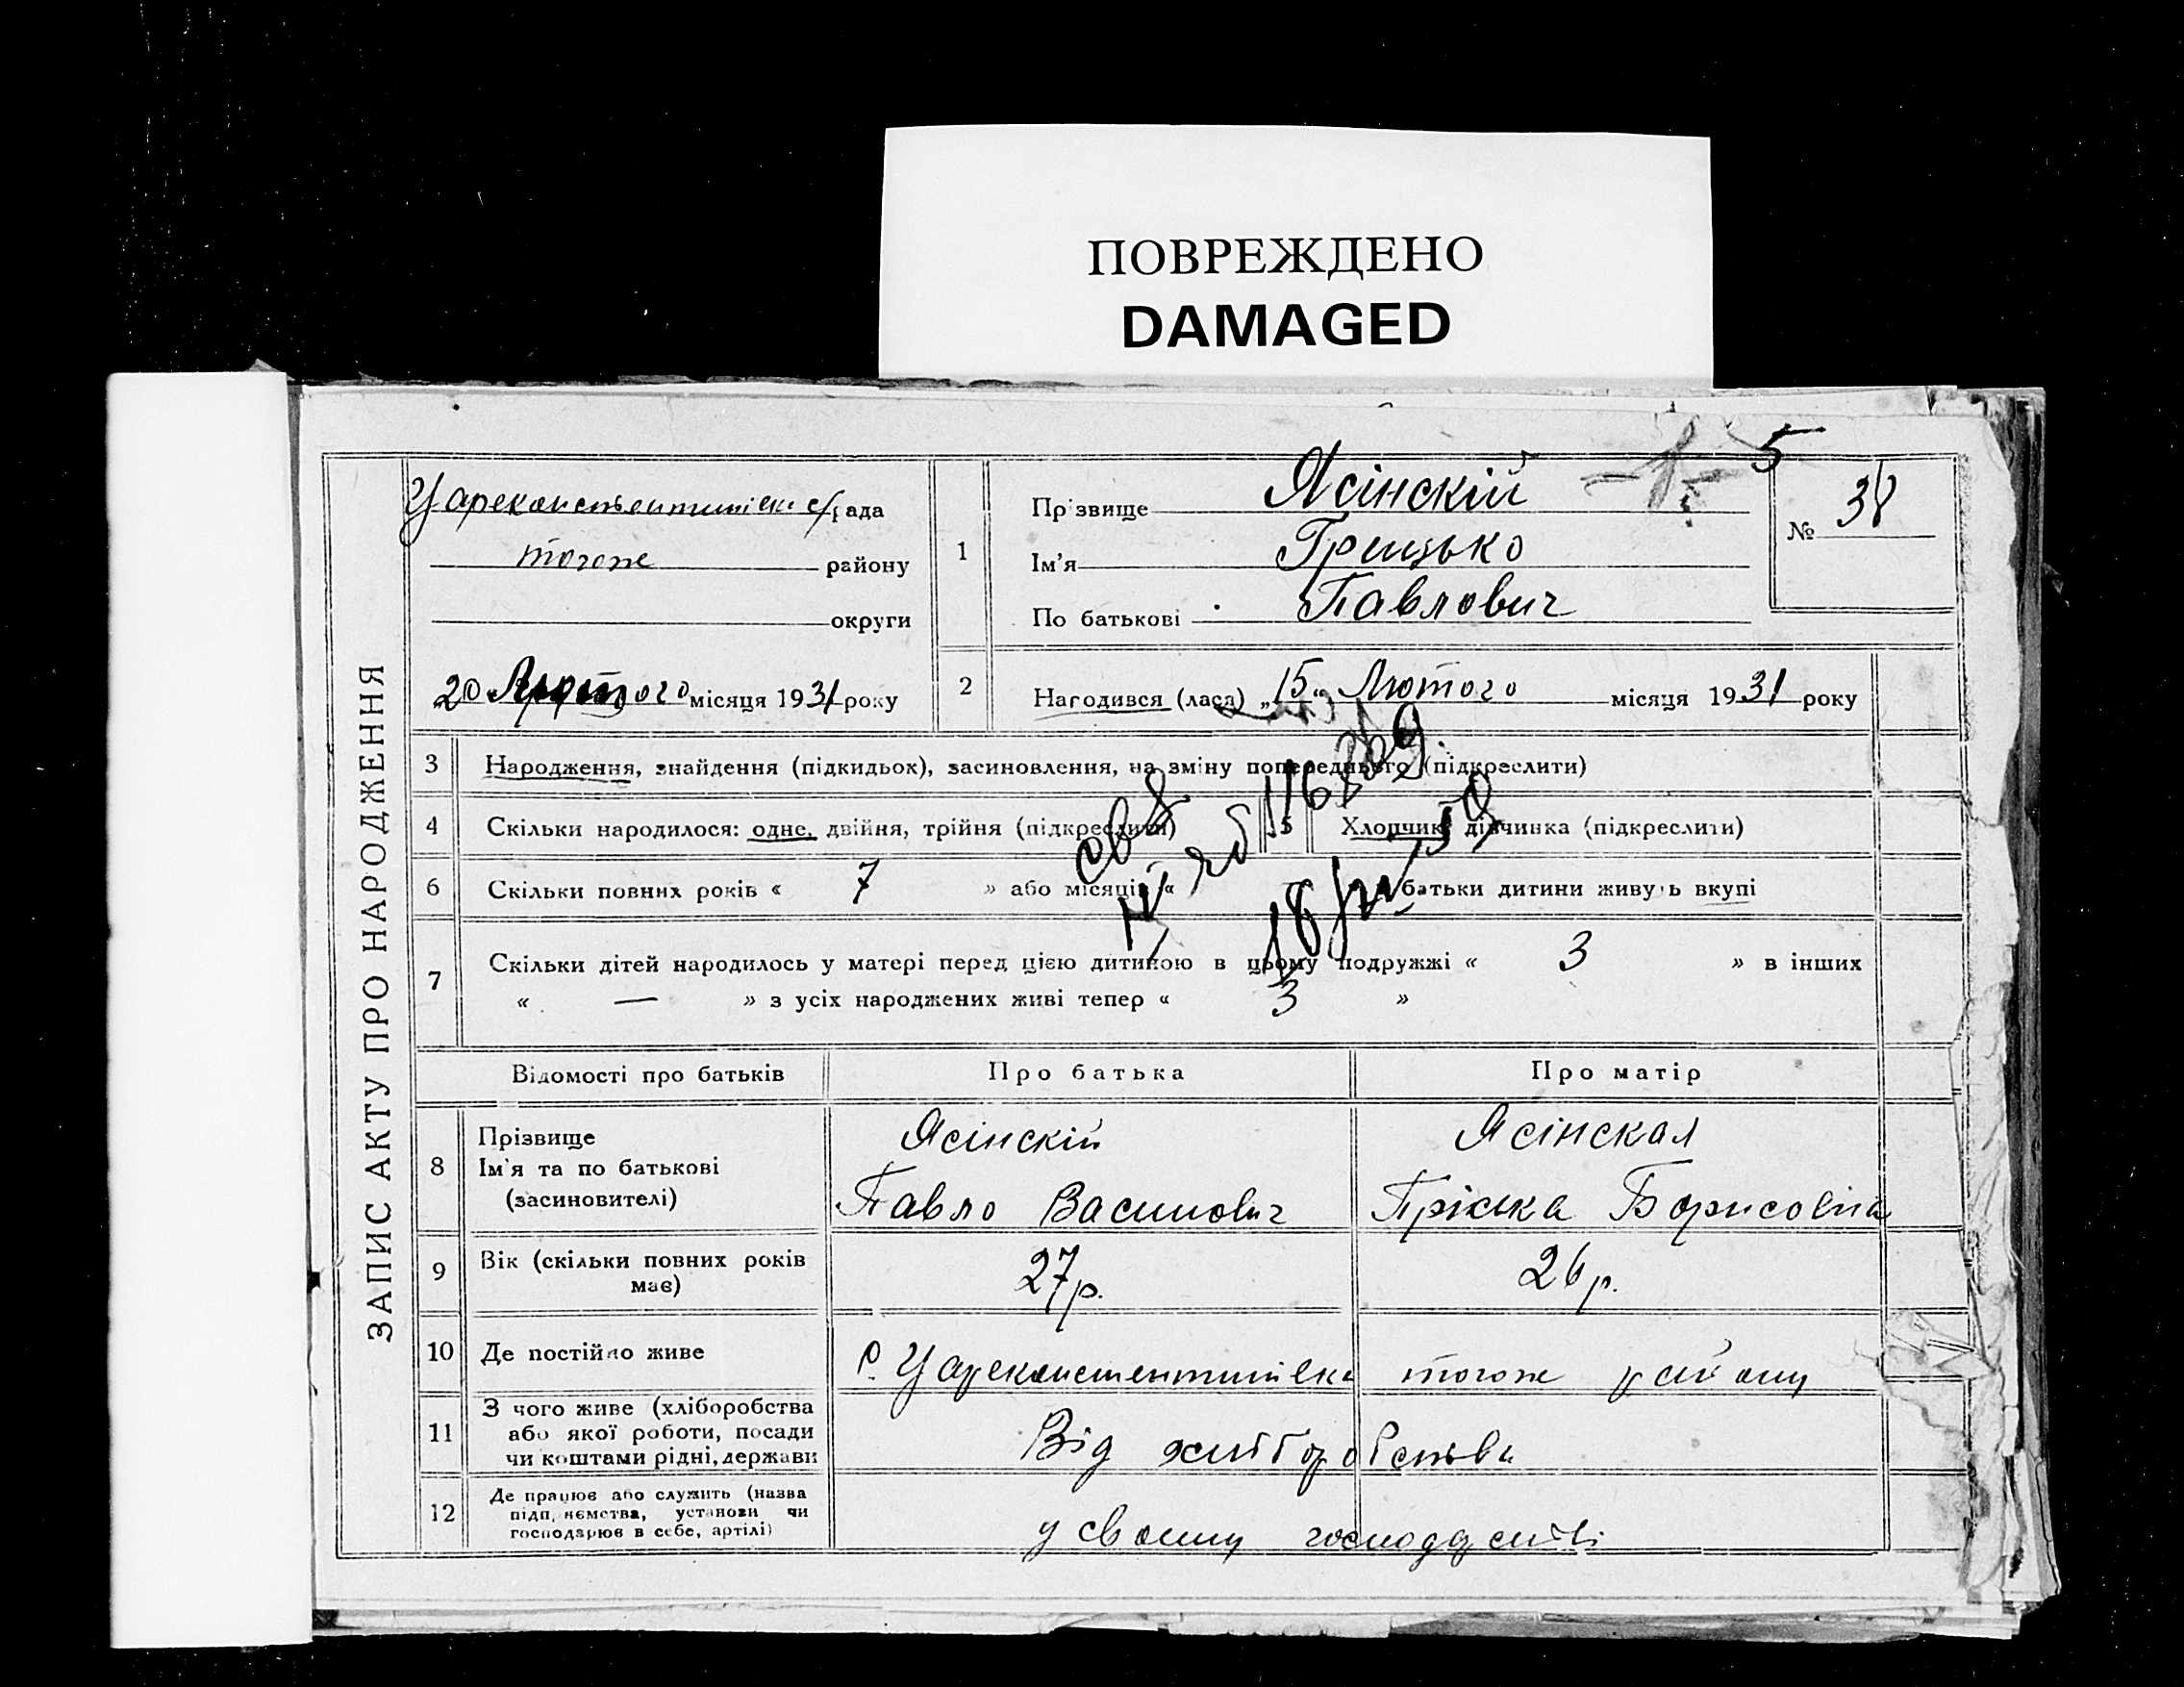 ПОВРЕЖДЕНО
DAMAGED
5
ЗАПИС АКТУ ПРО НАРОДЖЕННЯ
Царекон с/рада
тогоже району
округи
"20" Лютого місяця 1931 року
1
Прізвище Ясінскій
Ім'я Грицько
По батькові Павлович
№ 38
2 Нагодився (ласа) „15“ Лютого місяця 1931 року
3 Народження, знайдення (підкидьок), засиновлення, на зміну попереднього (підкреслити)
4 Скільки народилося: одне, двійня, трійня (підкреслити) 5 Хлопчик, дівчинка (підкреслити)
6 Скільки повних років « 7 » або місяців « — » батьки дитини живуть вкупі
7 Скільки дітей народилось у матері перед цією дитиною в цьому подружжі « 3 » в інших
« — » з усіх народжених живі тепер « 3 »
Відомості про батьків Про батька Про матір
8 Прізвище Ясінскій Ясінская
Ім'я та по батькові Павло Василович Пріська Борисовна
(засновителі)
9 Вік (скільки повних років має) 27 р. 26 р.
10 Де постійно живе с. Цареконстентинівка тогоже району
11 З чого живе (хліборобства
або якої роботи, посади
чи коштами рідні, держави Від хліборобства
12 Де працює або служить (назва
підприємства, установи чи
господарює в себе, артілі) у своему господарстві